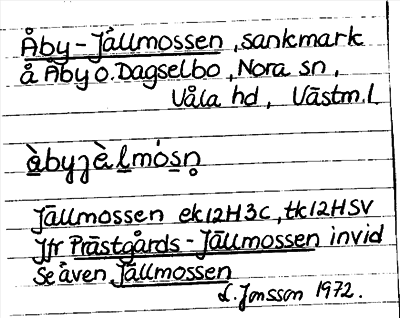 Åby-Jällmossen, sankmark
å Åby o. Dagselbo, Nora sn,
Våla hd, Västm.l.
àbyjὲlmósn̥
Jällmossen ek12H3c, tk12HSV
Jfr Prästgårds-Jällmossen invid
Se även Jällmossen
L. Jonsson 1972.